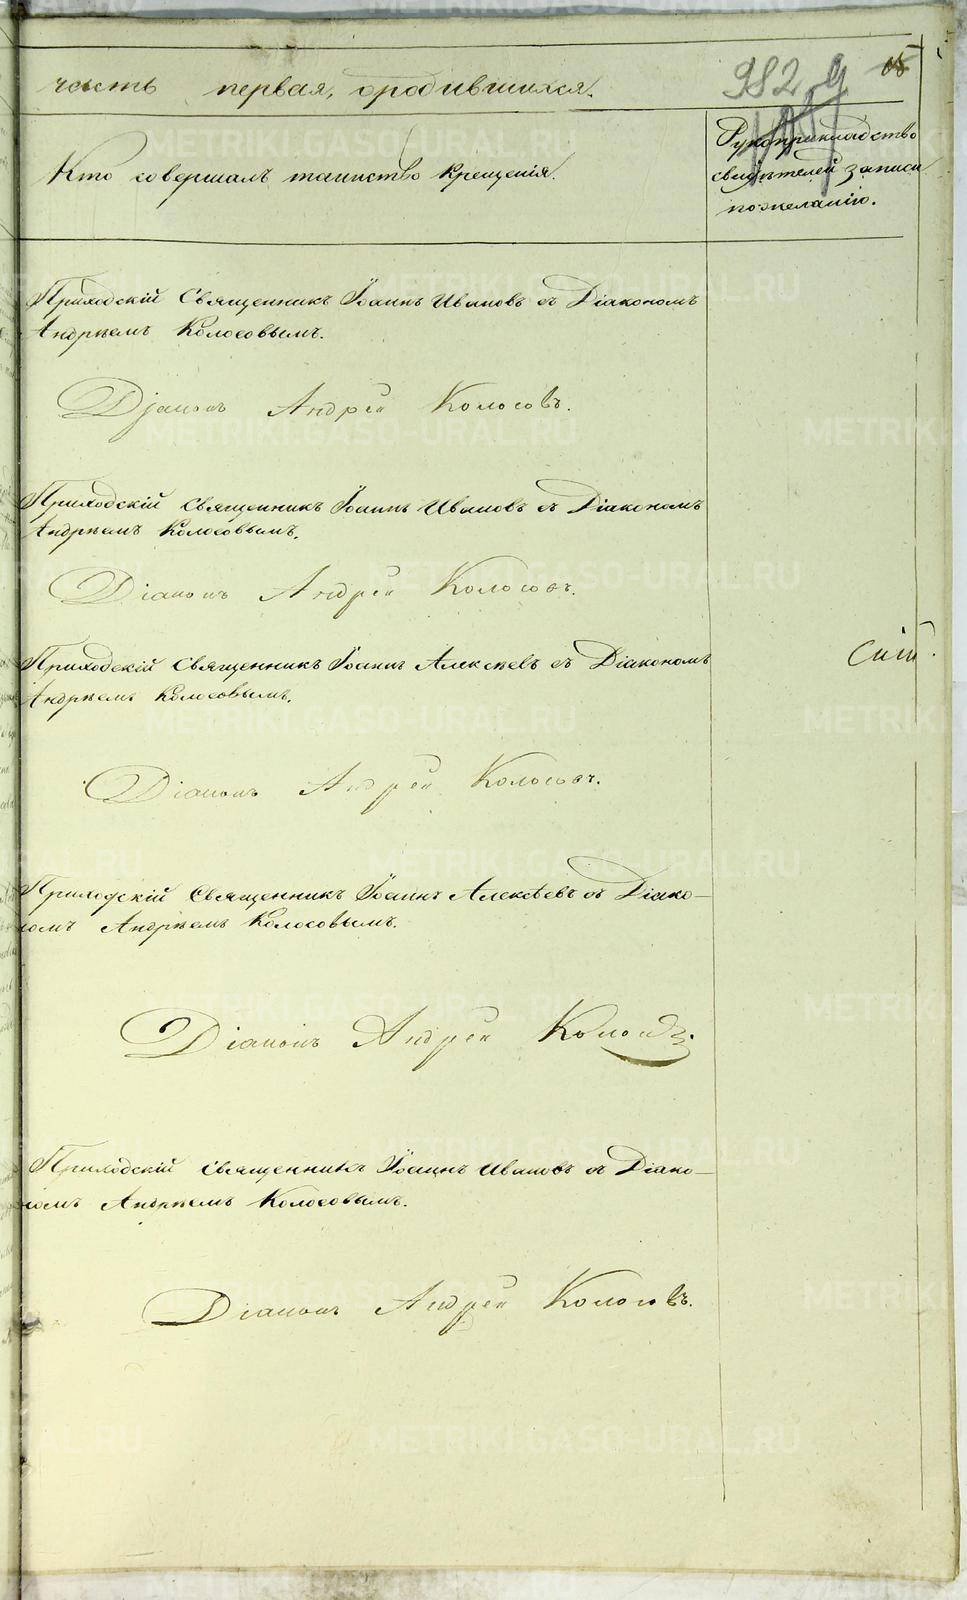 часть первая, о родившихся.
982
Кто совершалъ таинство Крещенія.
Рукоприкладство
свидѣтелей записи
по желанію.
Приходскій Священникъ Іоаннъ Ивановъ съ Діакономъ
Андрѣемъ Колосовымъ.
Діаконъ Андрей Колосовъ.
Приходскій Священникъ Іоаннъ Ивановъ съ Діакономъ
Андрѣемъ Колосовымъ.
Діаконъ Андрей Колосовъ.
Приходскій Священникъ Іоаннъ Алексѣевъ съ Діакономъ
Андрѣемъ Колосовымъ.
Діаконъ Андрей Колосовъ.
Приходскій Священникъ Іоаннъ Алексѣевъ съ Діако-
номъ Андрѣемъ Колосовымъ.
Діаконъ Андрей Колосовъ.
Приходскій Священникъ Іоаннъ Ивановъ съ Діако-
номъ Андрѣемъ Колосовымъ.
Діаконъ Андрей Колосовъ.
METRIKI.GASO-URAL.RU